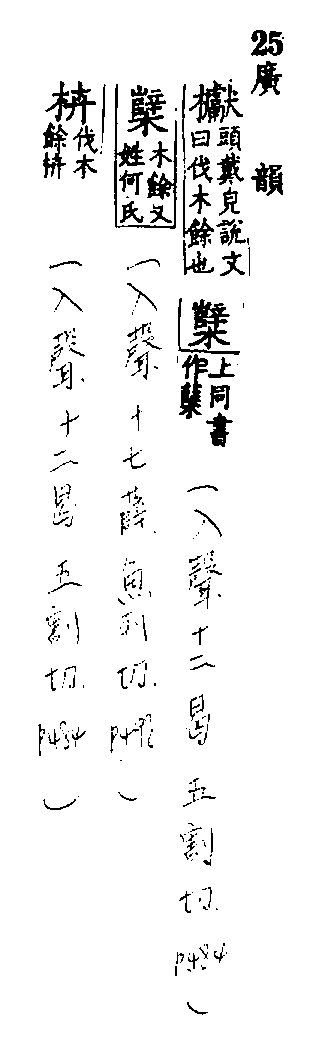 25 廣韻
㰅頭戴皃說文曰伐木餘也
櫱上同書作蘖
(入聲十二曷 五割切. P484)
櫱木餘又姓何氏
(入聲十七薛. 魚列切. P498)
枿伐木餘枿
(入聲十二曷 五割切. P484)